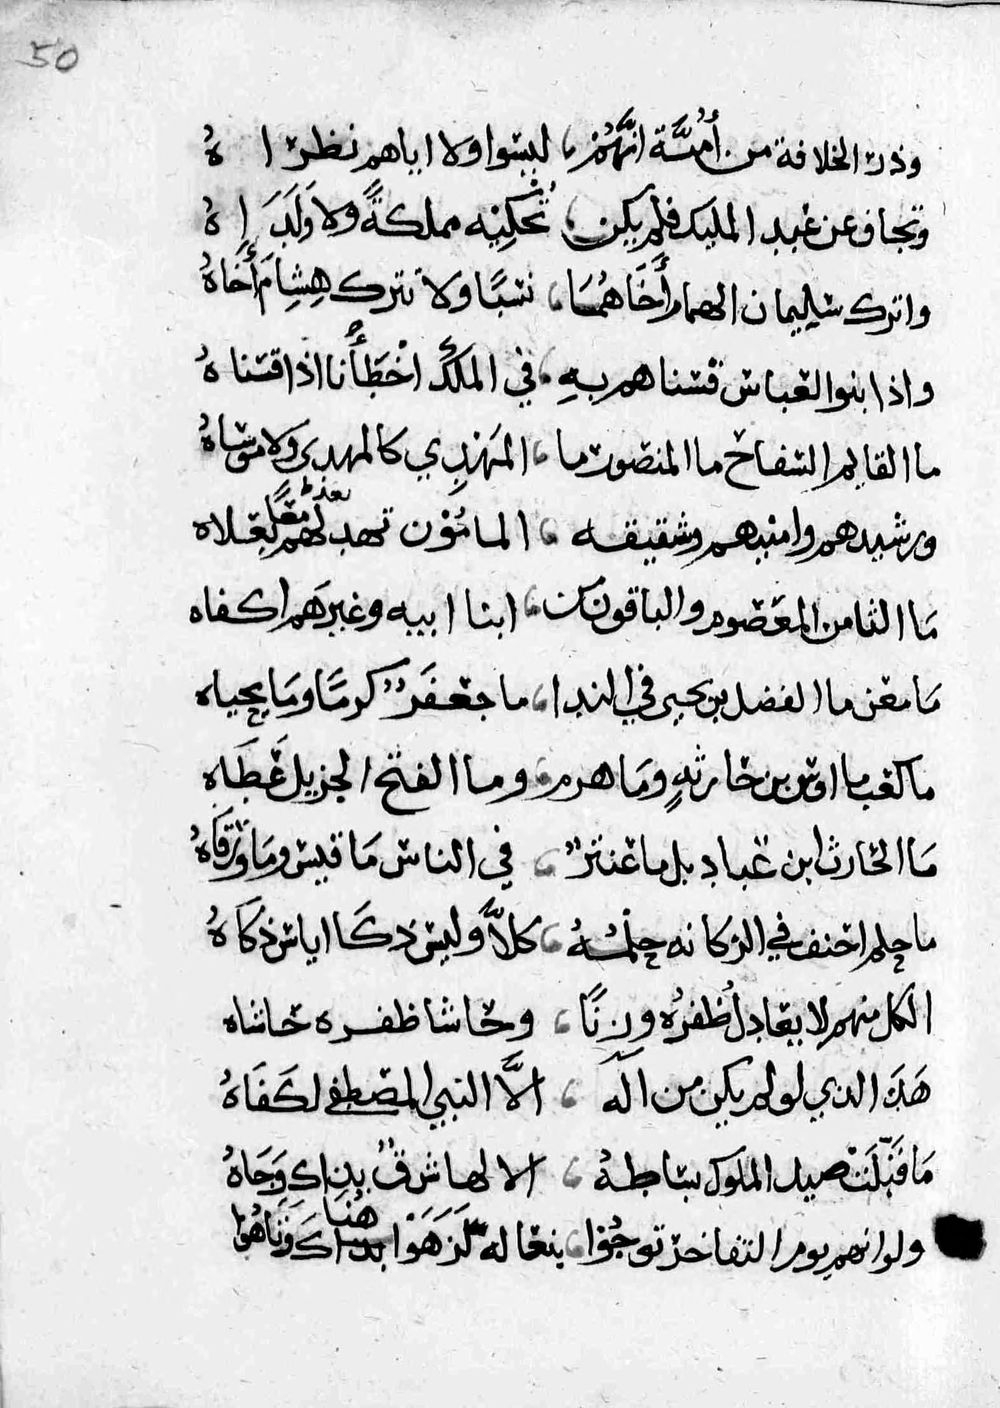 50
وذر الخلافة من أُميَّة انَّهُمْ ليسوا ولا اباهم نظرا هُ
وتجاف عن عبد المليك فلم يكن تُحْكِيْه مملكةً ولا وَلَدَا هُ
واترك سليمان الهمام أَخَاهُمَا نسبًا ولا تترك هِشِام أَخَاهُ
واذا بنوا العباس قسناهم بهِ في الملك اخْطَأْنا اذا قسناهُ
ما القايم السفاح ما المنصور ما المَهْدِي كالمهدى ولا موساهُ
ورشيدهم وامينهم وشقيقه المامُوْن تهد لهم لعلاه
بعد معًلى
مَا الثامن المعَصوم والباقون من ابنا ابيه وغيرهَم اكفاه
مَا معْن ما الفضل بن يحيى في الندا ما جعفَرٌ كرمًا ومَا يحياه
ما كعب ما اوس بن حارثهٍ ومَا هرم وما الفتح الجزيل عَطَاه
مَا الحارث ابن عباد بل ما عنترٌ في الناس مَا قيس ومَا وَرْقَاهُ
ما حِلم احنف في الركانه حِلْمُهُ كلاَّ وليس ذكَا اياس ذكَاهُ
الكل منهم لا يعَادل ظُفرُه وزنًا وحَاشا ظفره حَاشاه
هَذَا الذي لو لم يكن من اله الاَّ النبي المصطفى لكَفَاهُ
مَا قَبَّلَتْ صيد الملوك بساطهُ الا لها شرفٌ بذاك وَجَاهُ
هُنَا
ولو انهم يوم التفاخر توجُوْا بنعَاله لزَهَوْا بذاكَ وَتَاهُوْا